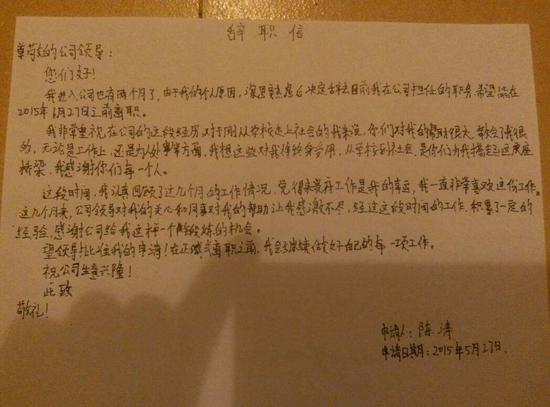 辞职信
尊敬的公司领导：
您们好！
我进入公司也有两个月了，由于我的个人原因，深思熟虑后决定辞去目前我在公司担任的职务，希望能在
2015年6月27日之前离职。
我非常重视，在公司的这段经历，对于刚从学校走上社会的我来说，你们对我的帮助很大，教会了我很
的，无论是工作上，还是为人处事等方面，我想这些对我终身受用，从学校到社会，是你们为我搭起这座
桥梁，我感谢你们每一个人。
这段时间，我认真回顾了这几个月的工作情况，觉得来贵府工作是我的幸运，我一直非常喜欢这份工作。
这几个月来，公司领导对我的关心和同事对我的帮助让我感激不尽，经过这段时间的工作，积累了一定的
经验，感谢公司给我这样一个锻炼的机会。
望领导批准我的申请！在正式离职之前，我会继续做好自己的每一项工作。
祝公司生意兴隆！
此致
敬礼！
申请人：陈涛
申请日期：2015年5月27日.